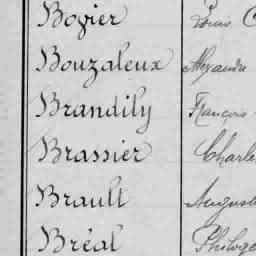 Bozier Louis
Bouzaleux Alexandre
Brandily François
Brassier Charle
Brault Auguste
Bréal Philoge